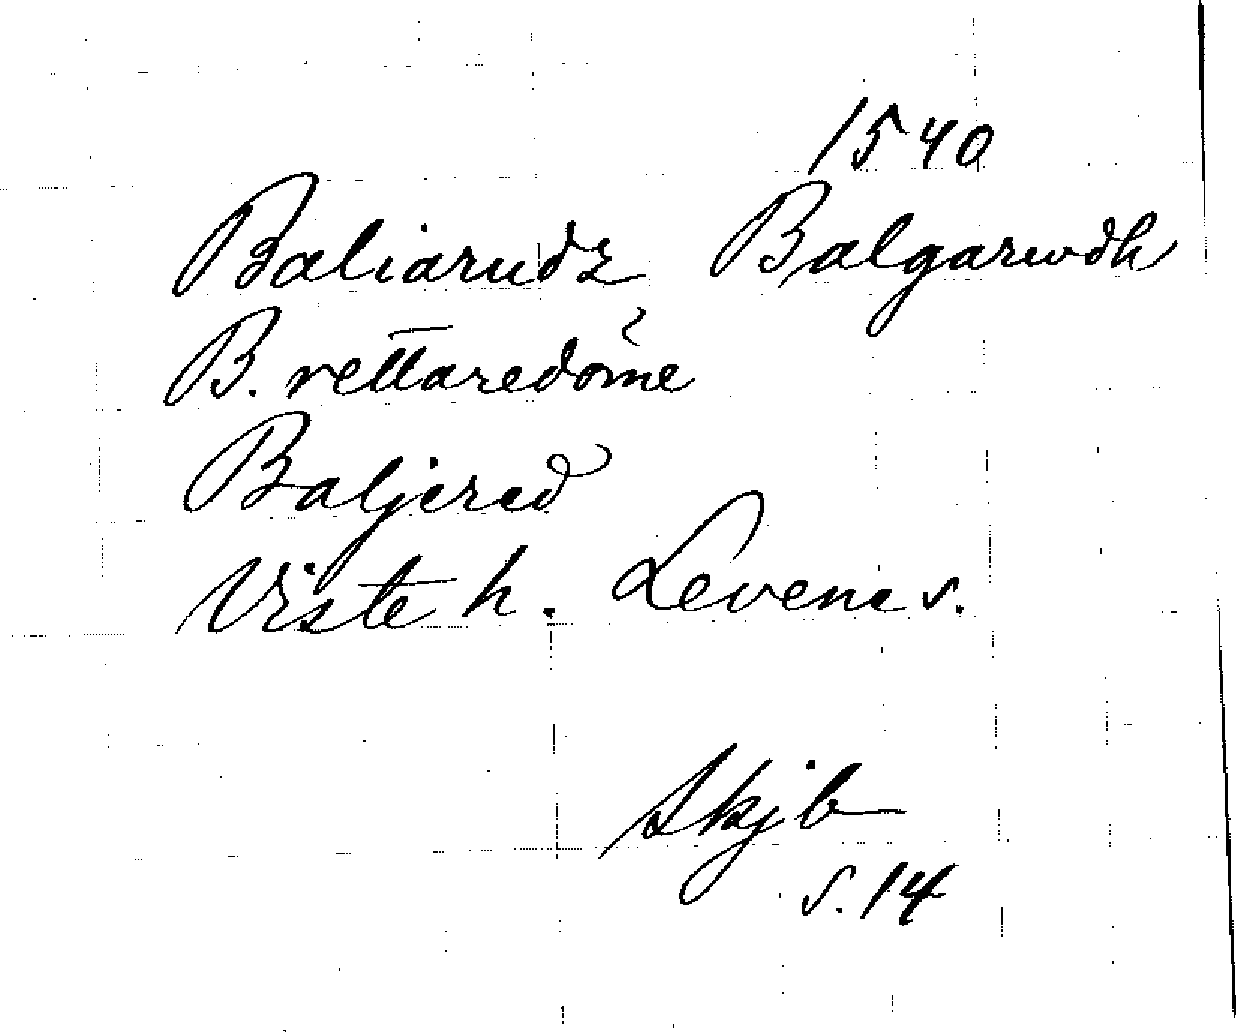 1540
Baliarudz Balgarwdh
B. rettaredöme
Baljered
Viste h. Levene s.
Skjb
s. 14